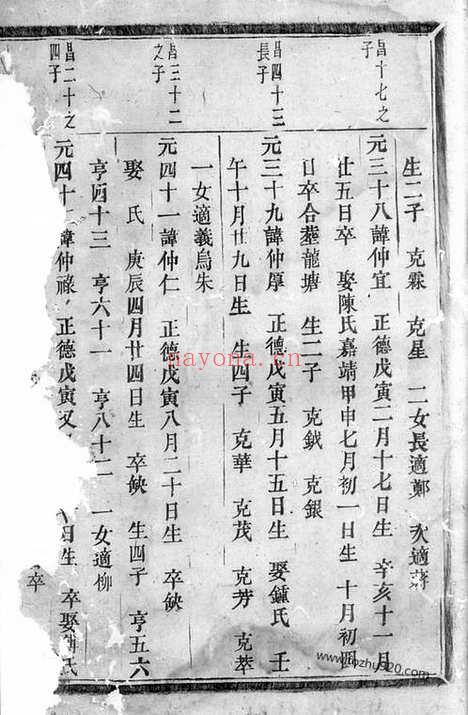 生二子 克霖 克星 二女長適鄭 次適蔣
昌十七之子
元三十八諱仲宜 正德戊寅二月十七日生 辛亥十一月
廿五日卒 娶陳氏嘉靖甲申七月初一日生 十月初四
日卒合塟龍塘 生二子 克鉞 克銀
昌四十三長子
元三十九諱仲厚 正德戊寅五月十五日生 娶鍾氏 壬
午十月廿九日生 生四子 克華 克茂 克芳 克萃
一女適義烏朱
昌三十二之子
元四十一諱仲仁 正德戊寅八月二十日生 卒缺
娶 氏 庚辰四月廿四日生 卒缺 生四子 亨五六
亨四十三 亨六十一 亨八十二 一女適柳
昌二十之四子
元四十 諱仲祿 正德戊寅又 日生 卒娶 氏
卒
nayona.cn